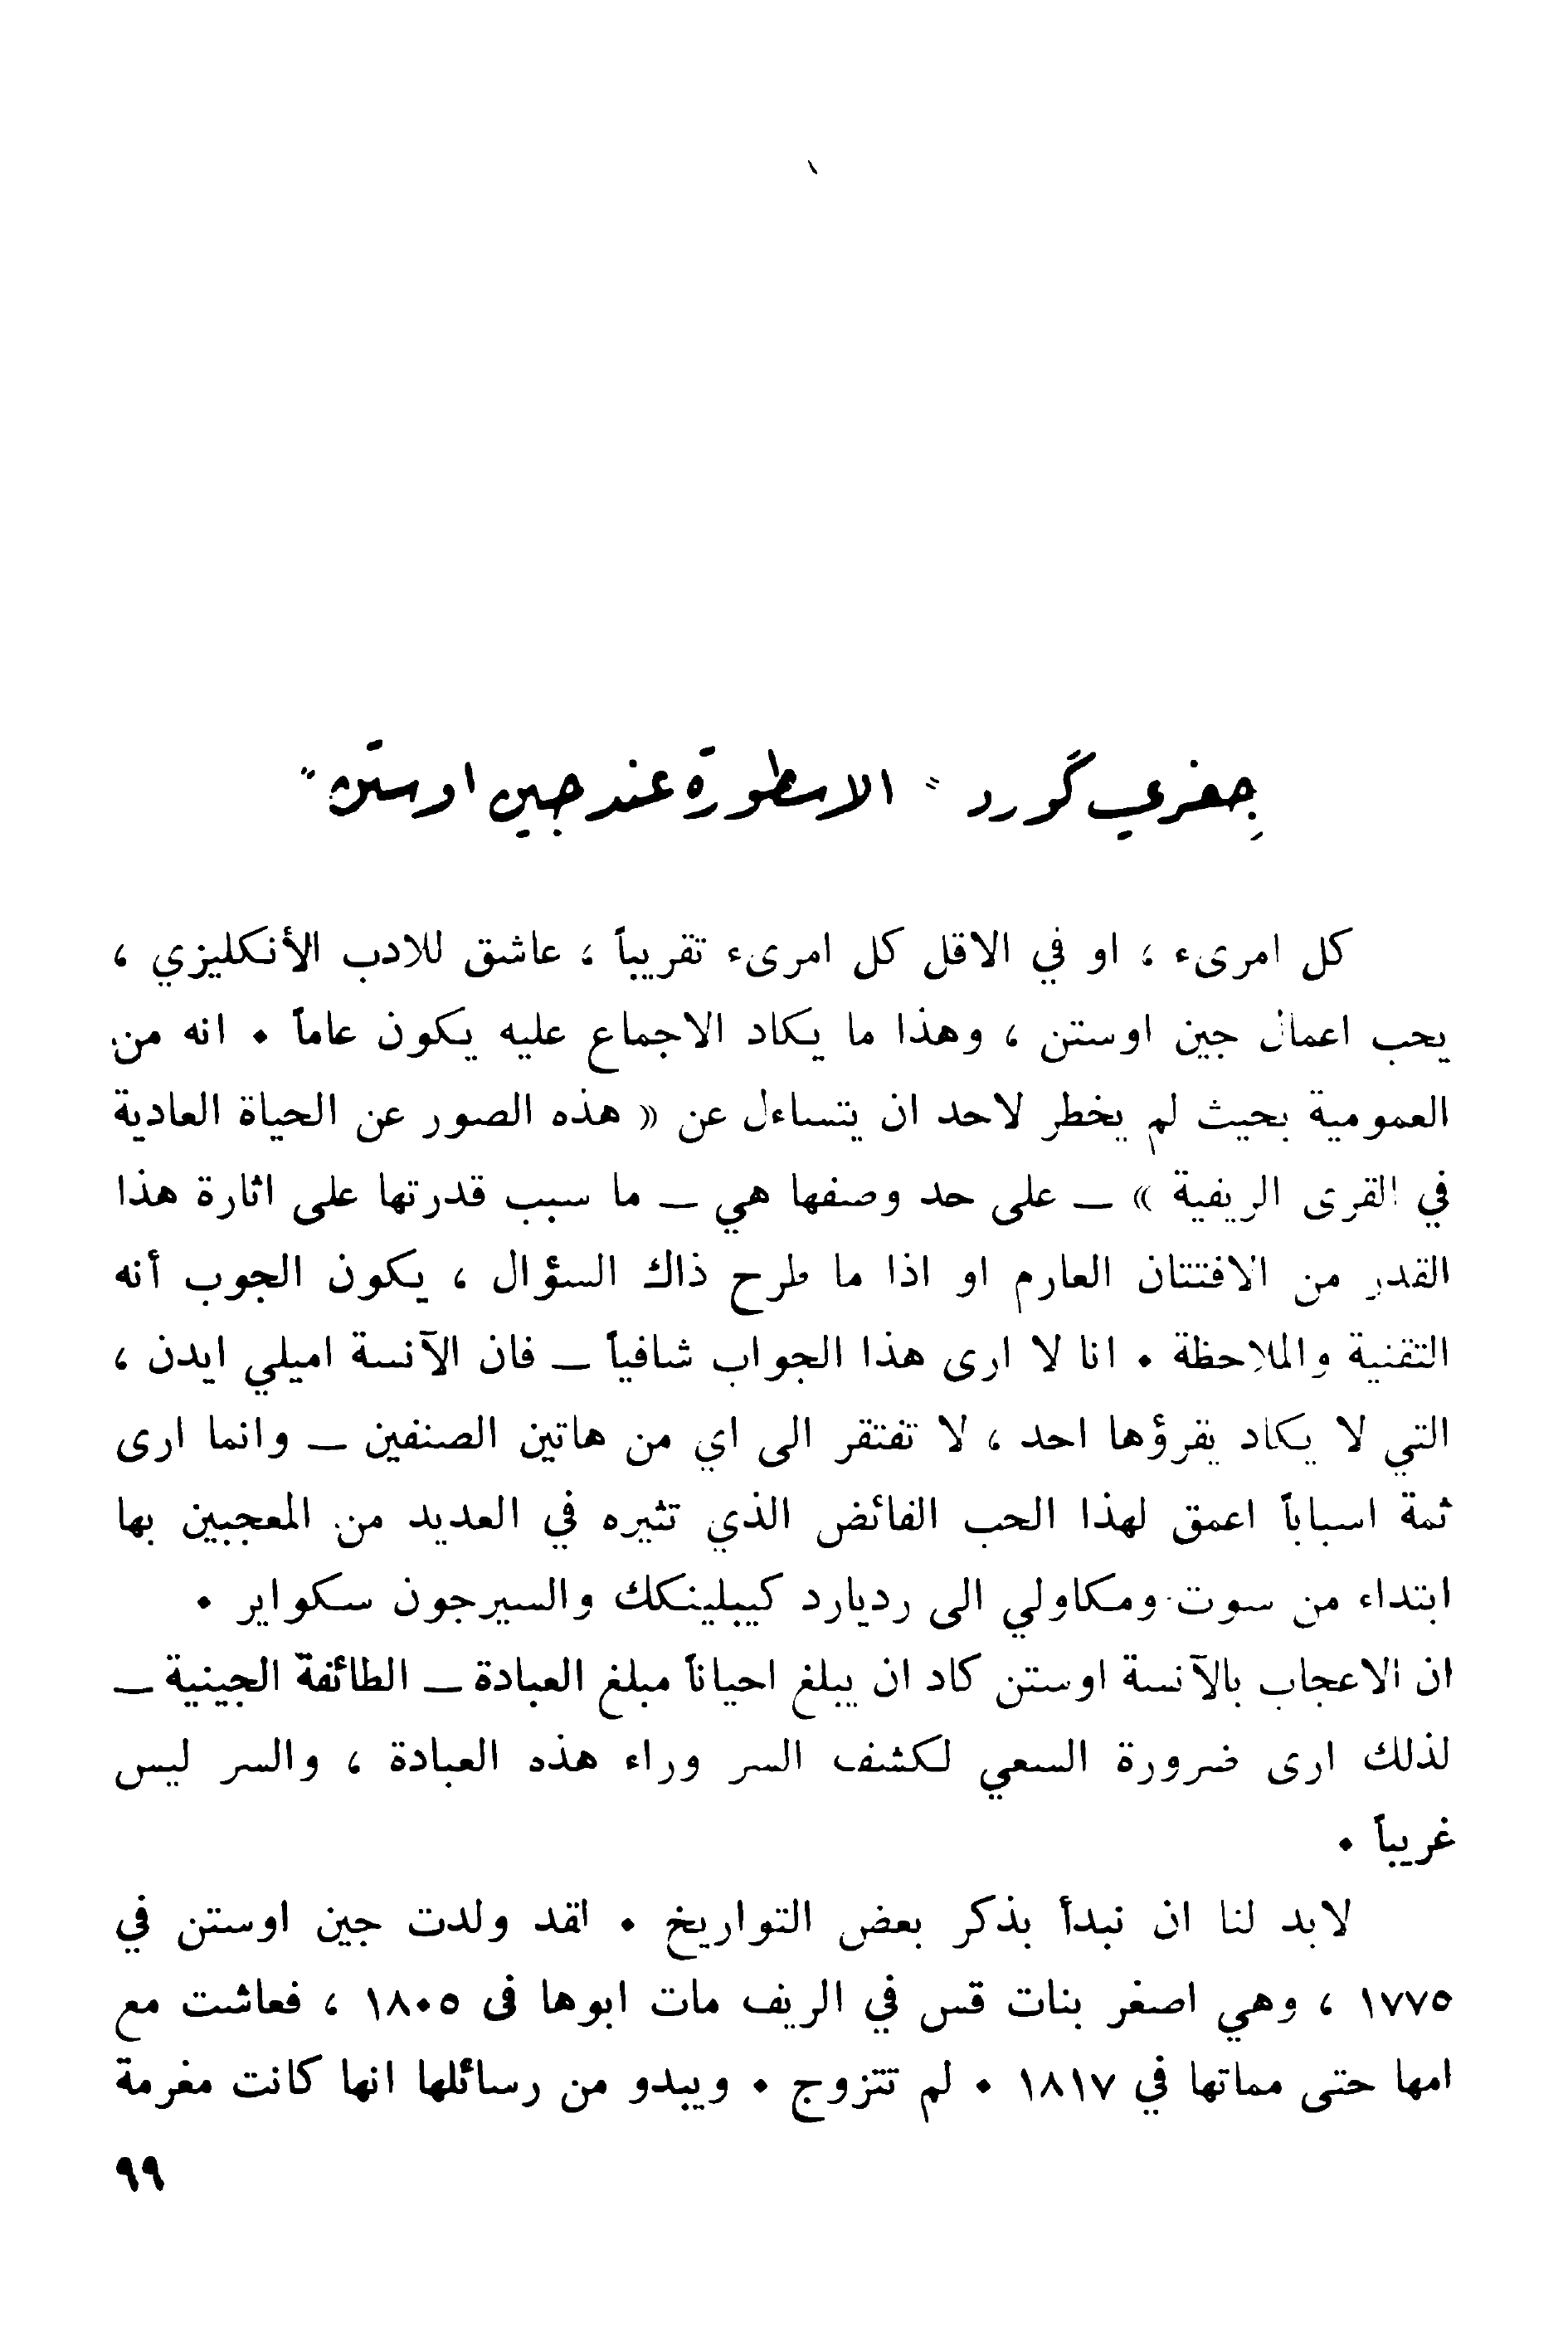 جفري گورد "الاسطورة عند جين اوستن"
كل امرىء ، او في الاقل كل امرىء تقريباً ، عاشق للادب الأنكليزي ،
يحب اعمال جين اوستن ، وهذا ما يكاد الاجماع عليه يكون عاماً • انه من
العمومية بحيث لم يخطر لاحد ان يتساءل عن « هذه الصور عن الحياة العادية
في القرى الريفية » ــ على حد وصفها هي ــ ما سبب قدرتها على اثارة هذا
القدر من الافتتان العارم او اذا ما طرح ذاك السؤال ، يكون الجوب أنه
التقنية والملاحظة • انا لا ارى هذا الجواب شافياً ــ فان الآنسة اميلي ايدن ،
التي لا يكاد يقرؤها احد ، لا تفتقر الى اي من هاتين الصنفين ــ وانما ارى
ثمة اسباباً اعمق لهذا الحب الفائض الذي تثيره في العديد من المعجبين بها
ابتداء من سوت ومكاولي الى رديارد كيبلينكك والسيرجون سكواير •
ان الاعجاب بالآنسة اوستن كاد ان يبلغ احياناً مبلغ العبادة ــ الطائفة الجينية ــ
لذلك ارى ضرورة السعي لكشف السر وراء هذه العبادة ، والسر ليس
غريباً •
لابد لنا ان نبدأ بذكر بعض التواريخ • لقد ولدت جين اوستن في
١٧٧٥ ، وهي اصغر بنات قس في الريف مات ابوها فى ١٨٠٥ ، فعاشت مع
امها حتى مماتها في ١٨١٧ • لم تتزوج • ويبدو من رسائلها انها كانت مغرمة
٩٩